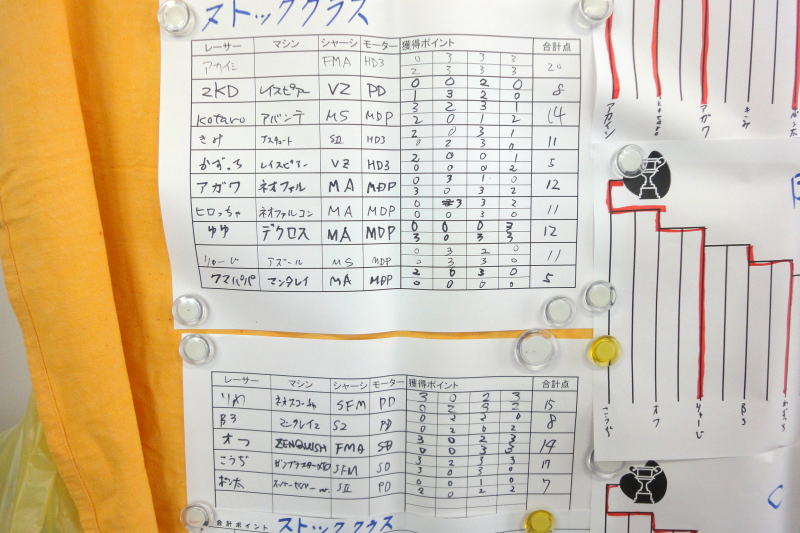 ストッククラス
レーサー マシン シャーシ モーター 獲得ポイント 合計点
アカイシ FMA HD3 0 3 3 3 20
2 3 3 3
2KD レイスピアー VZ PD 0 0 2 0 8
1 3 2 0
Kotaro アバンテ MS MDP 3 2 3 1 14
2 0 1 2
きみ アスチュート SII HD3 2 0 3 1 11
0 2 3 0
かずひろ レイスピアー VZ HD3 2 0 0 1 5
0 0 0 2
アガワ ネオファル MA MDP 0 3 1 0 12
3 0 3 2
ヒロっちゃ ネオファルコン MA MDP 0 3 3 2 11
0 0 3 0
ゆゆ デクロス MA MDP 0 0 0 3 12
3 0 3 3
りゅーじ アズール MS MDP 0 3 2 0 11
0 3 3 0
クマパパ マンタレイ MA MDP 2 0 3 0 5
0 0 0 0
レーサー マシン シャーシ モーター 獲得ポイント 合計点
りめ SFM PD 3 0 2 3 15
0 2 3 2
B3 マンタレイ2 S2 PD 0 2 2 0 8
0 2 0 2
オつ ZENQUISH FMA SD 3 0 2 3 14
0 0 3 3
こうぢ SFM SD 3 2 3 3 17
3 0 3 0
ポン太 SII PD 0 0 1 0 7
2 0 2 2
合計ポイント ストッククラス
アカイシ
kotaro
アガワ
きみ
ポン太
こうぢ
オつ
りゅーじ
B3
かずひろ
C